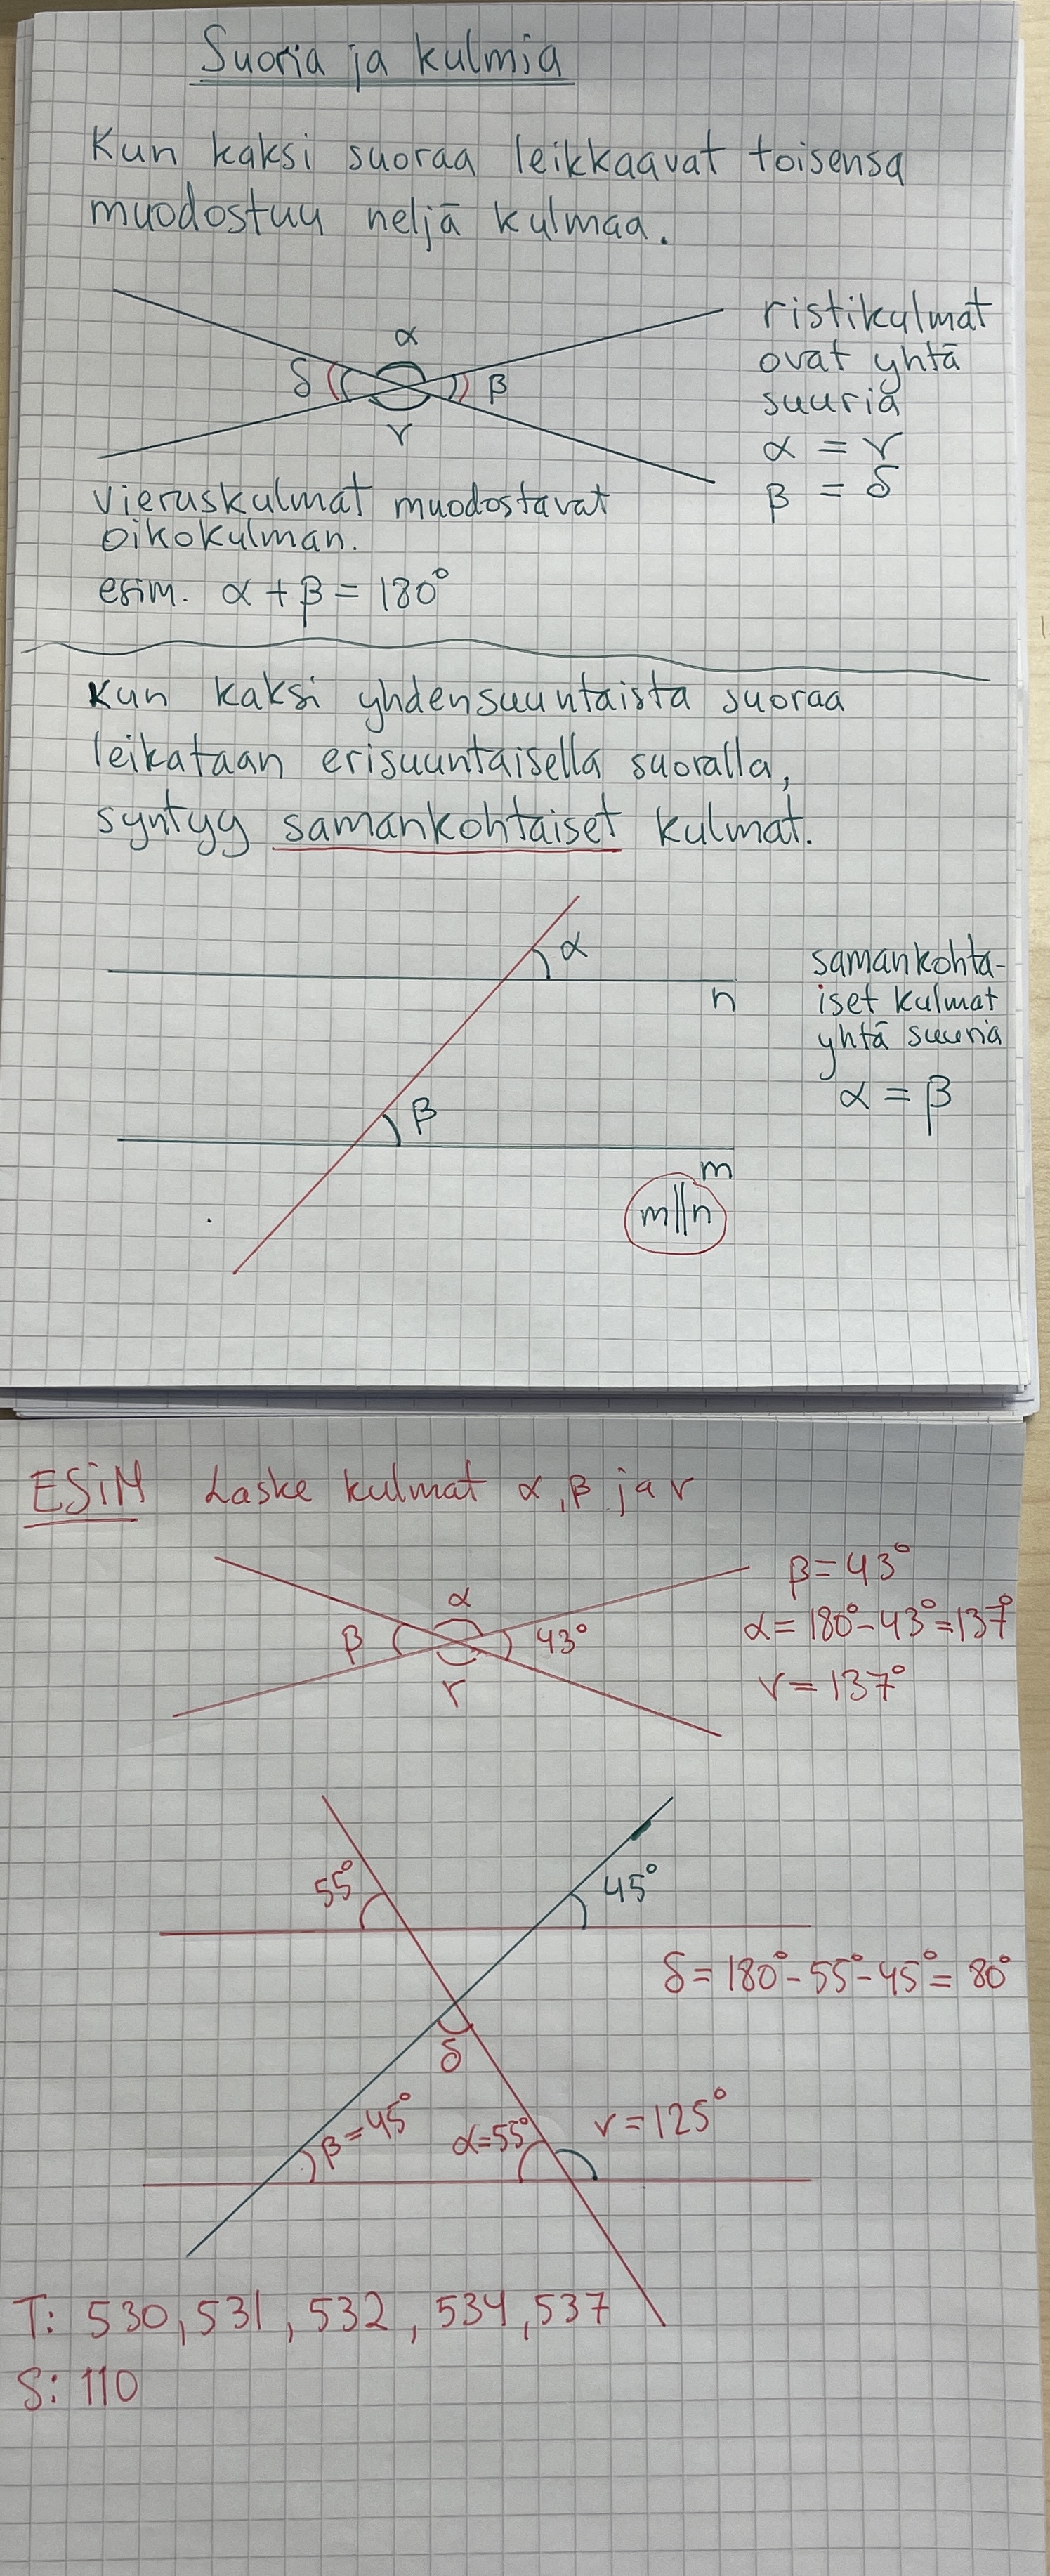 Suoria ja kulmia
Kun kaksi suoraa leikkaavat toisensa
muodostuu neljä kulmaa.
α
δ
β
γ
ristikulmat
ovat yhtä
suuria
α = γ
β = δ
vieruskulmat muodostavat
oikokulman.
esim. α + β = 180°
Kun kaksi yhdensuuntaista suoraa
leikataan erisuuntaisella suoralla,
syntyy samankohtaiset kulmat.
α
n
β
m
m||n
samankohta-
iset kulmat
yhtä suuria
α = β
ESiM Laske kulmat α, β ja γ
α
β
43°
γ
β = 43°
α = 180° - 43° = 137°
γ = 137°
55°
45°
δ = 180° - 55° - 45° = 80°
δ
β = 45°
α = 55°
γ = 125°
T: 530, 531, 532, 534, 537
S: 110